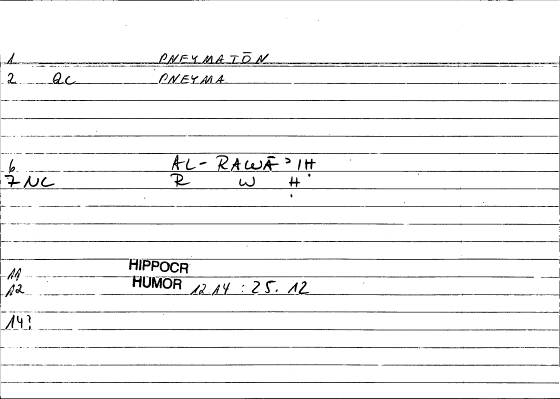 1 PNEYMATŌN
2 QC PNEYMA
6 AL-RAWĀʾIḤ
7 NC R W Ḥ
11 HIPPOCR
12 HUMOR 12 A4 : 25. 12
14?